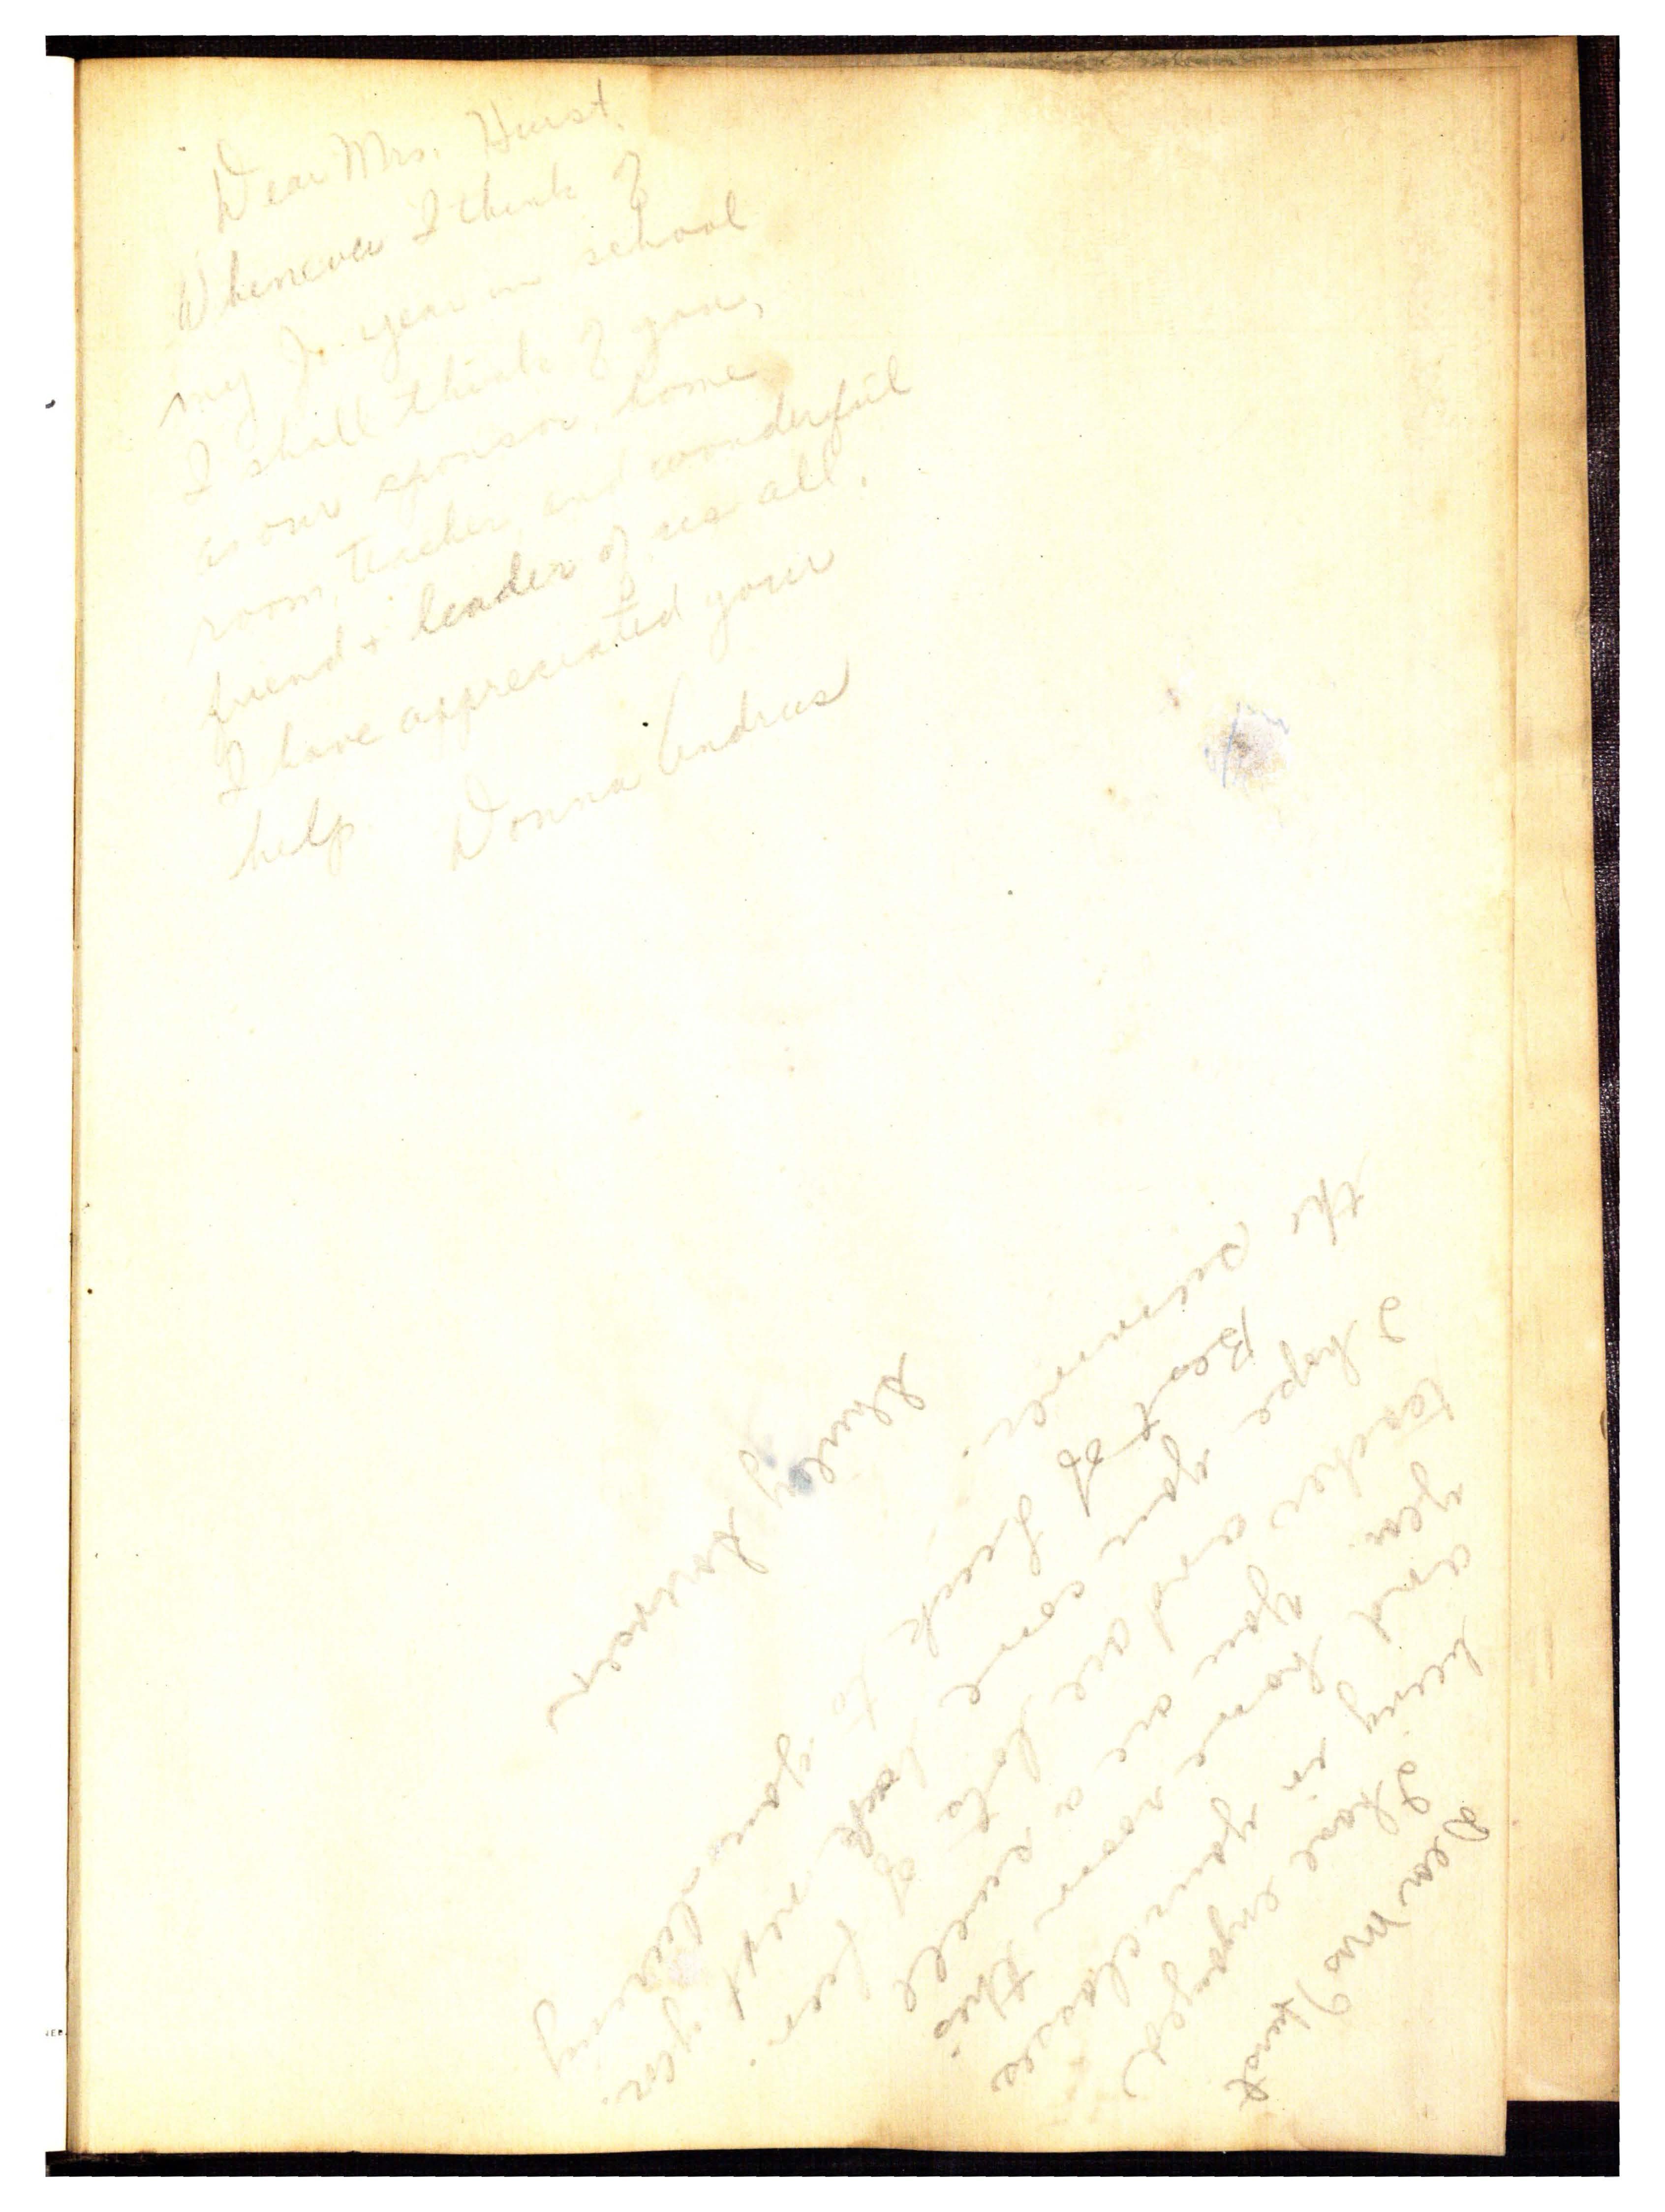 Dear Mrs. Hurst,
Whenever I think of
my Jr. year in school
I shall think of you,
as our sponsor, home
room, teacher, and wonderful
friend + leader of us all.
I have appreciated your
help Donna Andrus
Dear Mrs Hurst
I have enjoyed
being in your classes
and home room this
year. You are a swell
teacher and are lots of fun.
I hope you come back next year.
Best of Luck to you during
the summer.
Shirley
JEB.